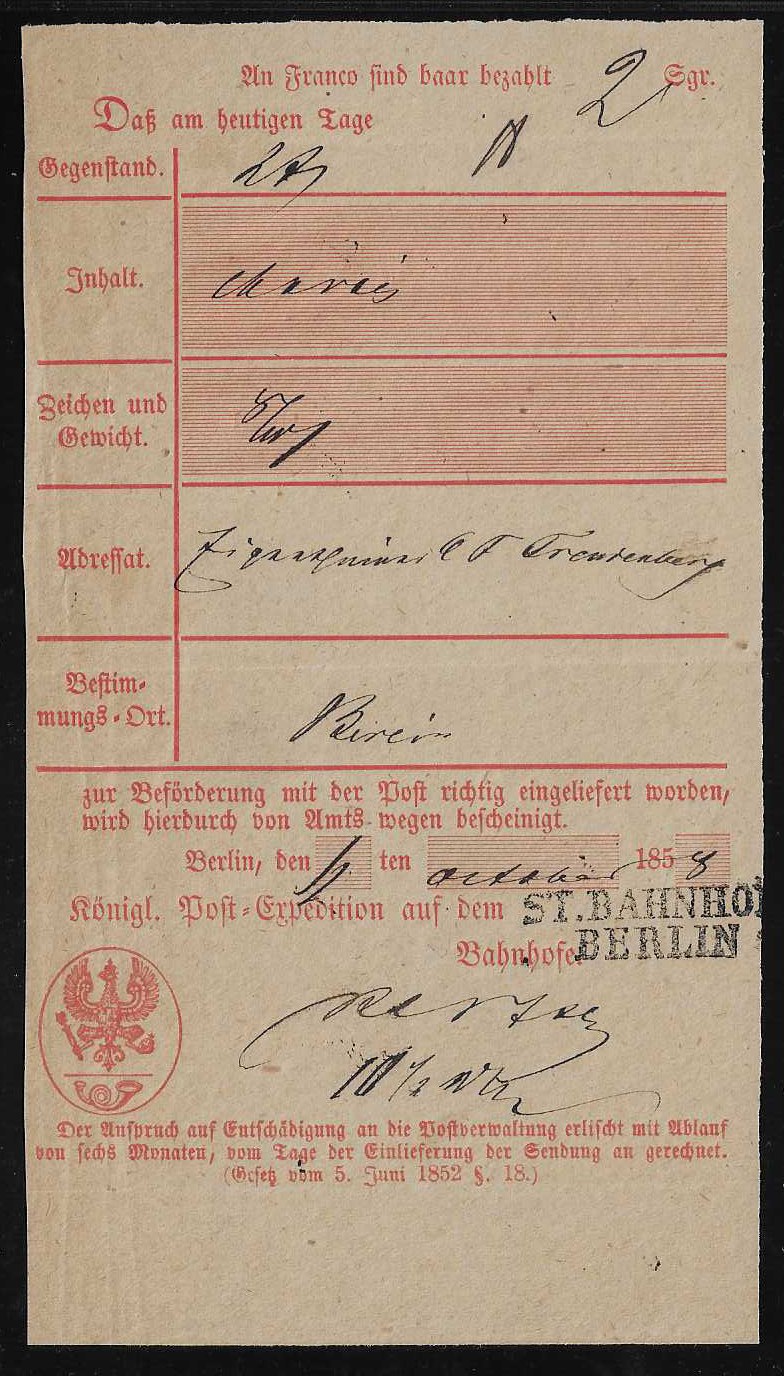 An Franco sind baar bezahlt 2 Sgr.
Daß am heutigen Tage
Gegenstand.
Inhalt.
Zeichen und
Gewicht.
Adressat. Eigenthümer C F Freudenberg
Bestim-
mungs-Ort. Berlin
zur Beförderung mit der Post richtig eingeliefert worden,
wird hierdurch von Amts wegen bescheinigt.
Berlin, den ten October 1858
Königl. Post-Expedition auf dem ST. BAHNHOF
Bahnhofe. BERLIN
10 1/2
Der Anspruch auf Entschädigung an die Postverwaltung erlischt mit Ablauf
von sechs Monaten, vom Tage der Einlieferung der Sendung an gerechnet.
(Gesetz vom 5. Juni 1852 §. 18.)